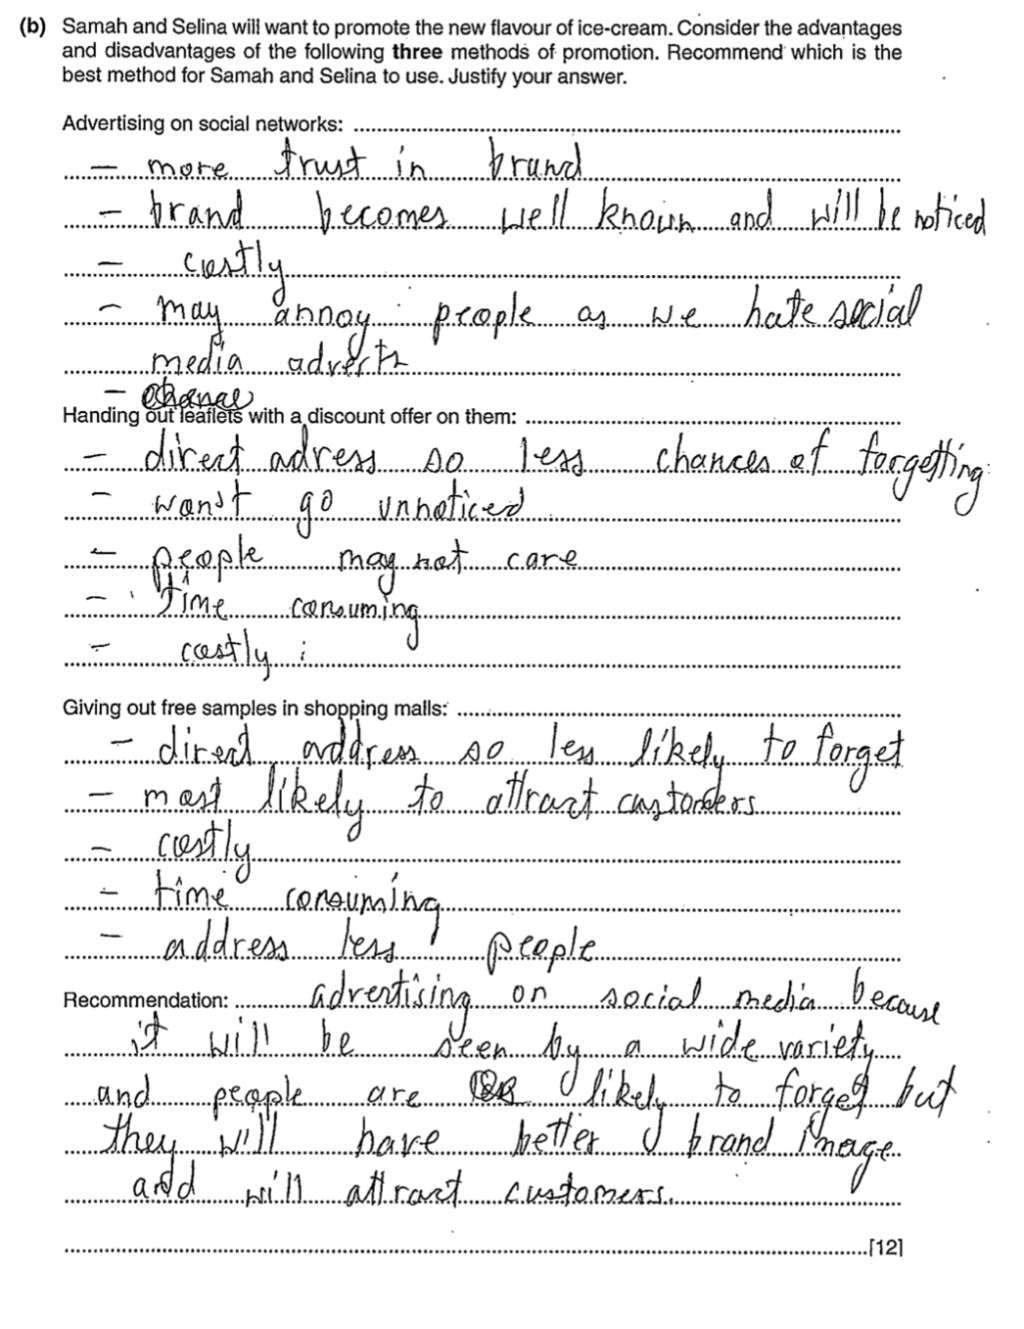 (b) Samah and Selina will want to promote the new flavour of ice-cream. Consider the advantages
and disadvantages of the following three methods of promotion. Recommend which is the
best method for Samah and Selina to use. Justify your answer.
Advertising on social networks:
- more trust in brand
- brand becomes well known and will be noticed
- costly
- may annoy people as we hate social
media adverts
-
Handing out leaflets with a discount offer on them:
- direct adress so less chances of forgetting
- won't go unnoticed
- people may not care
- time consuming
- costly
Giving out free samples in shopping malls:
- direct address so less likely to forget
- most likely to attract customers
- costly
- time consuming
- address less people
Recommendation: advertising on social media because
it will be seen by a wide variety
and people are likely to forget but
they will have better brand image
and will attract customers.
[12]